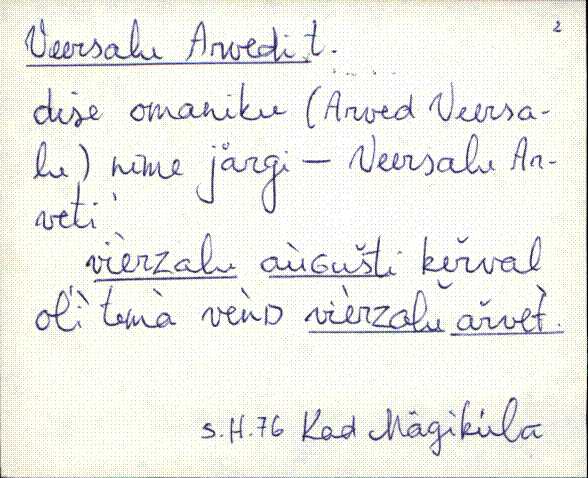 2
Veersalu Arvedi t.
dise omaniku (Arved Veersa-
lu) nime järgi – Veersalu Ar-
veti
vièrzalu aùGušti kĕrval
oľì temà venD vièrzalŭ ărvèt.
s.H.76 Kad Mägiküla